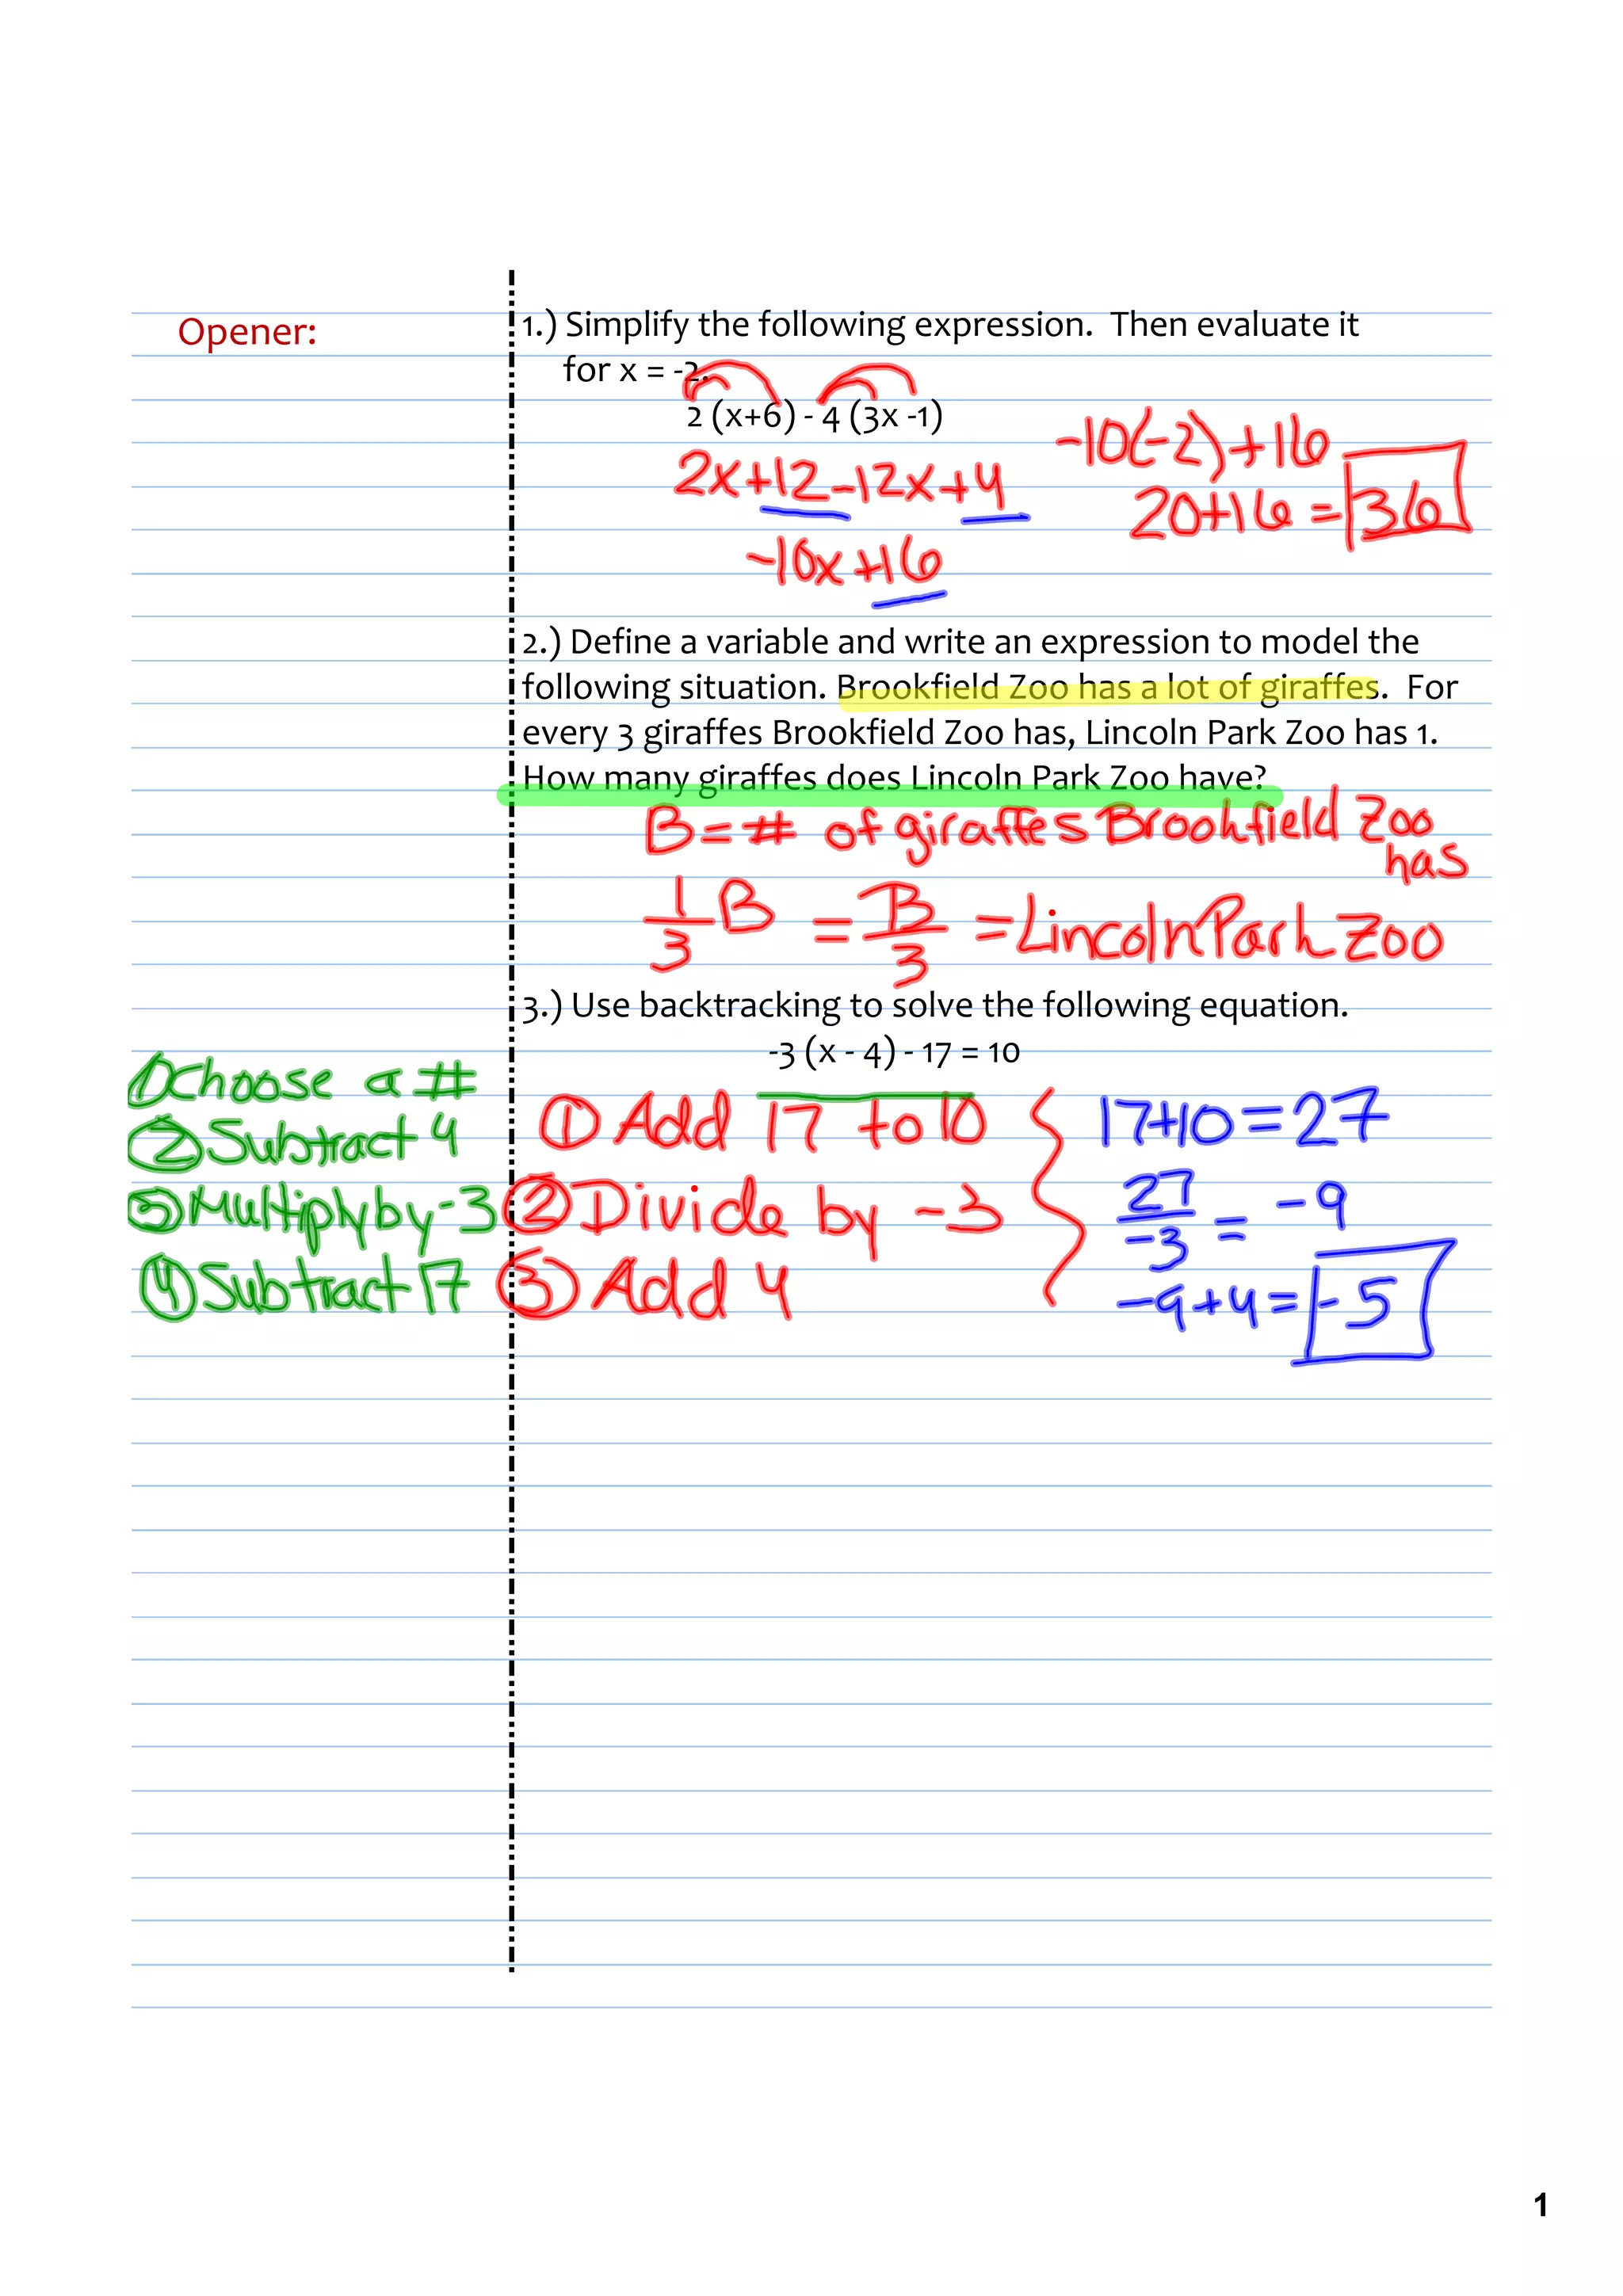 Opener:
1.) Simplify the following expression. Then evaluate it
for x = -2.
2 (x+6) - 4 (3x -1)
2x+12-12x+4
-10x+16
-10(-2)+16
20+16=36
2.) Define a variable and write an expression to model the
following situation. Brookfield Zoo has a lot of giraffes. For
every 3 giraffes Brookfield Zoo has, Lincoln Park Zoo has 1.
How many giraffes does Lincoln Park Zoo have?
B = # of giraffes Brookfield Zoo
has
1/3 B = B/3 = Lincoln Park Zoo
3.) Use backtracking to solve the following equation.
-3 (x - 4) - 17 = 10
① Choose a #
② Subtract 4
③ Multiply by -3
④ Subtract 17
① Add 17 to 10
② Divide by -3
③ Add 4
17+10=27
27/-3 = -9
-9+4=-5
1